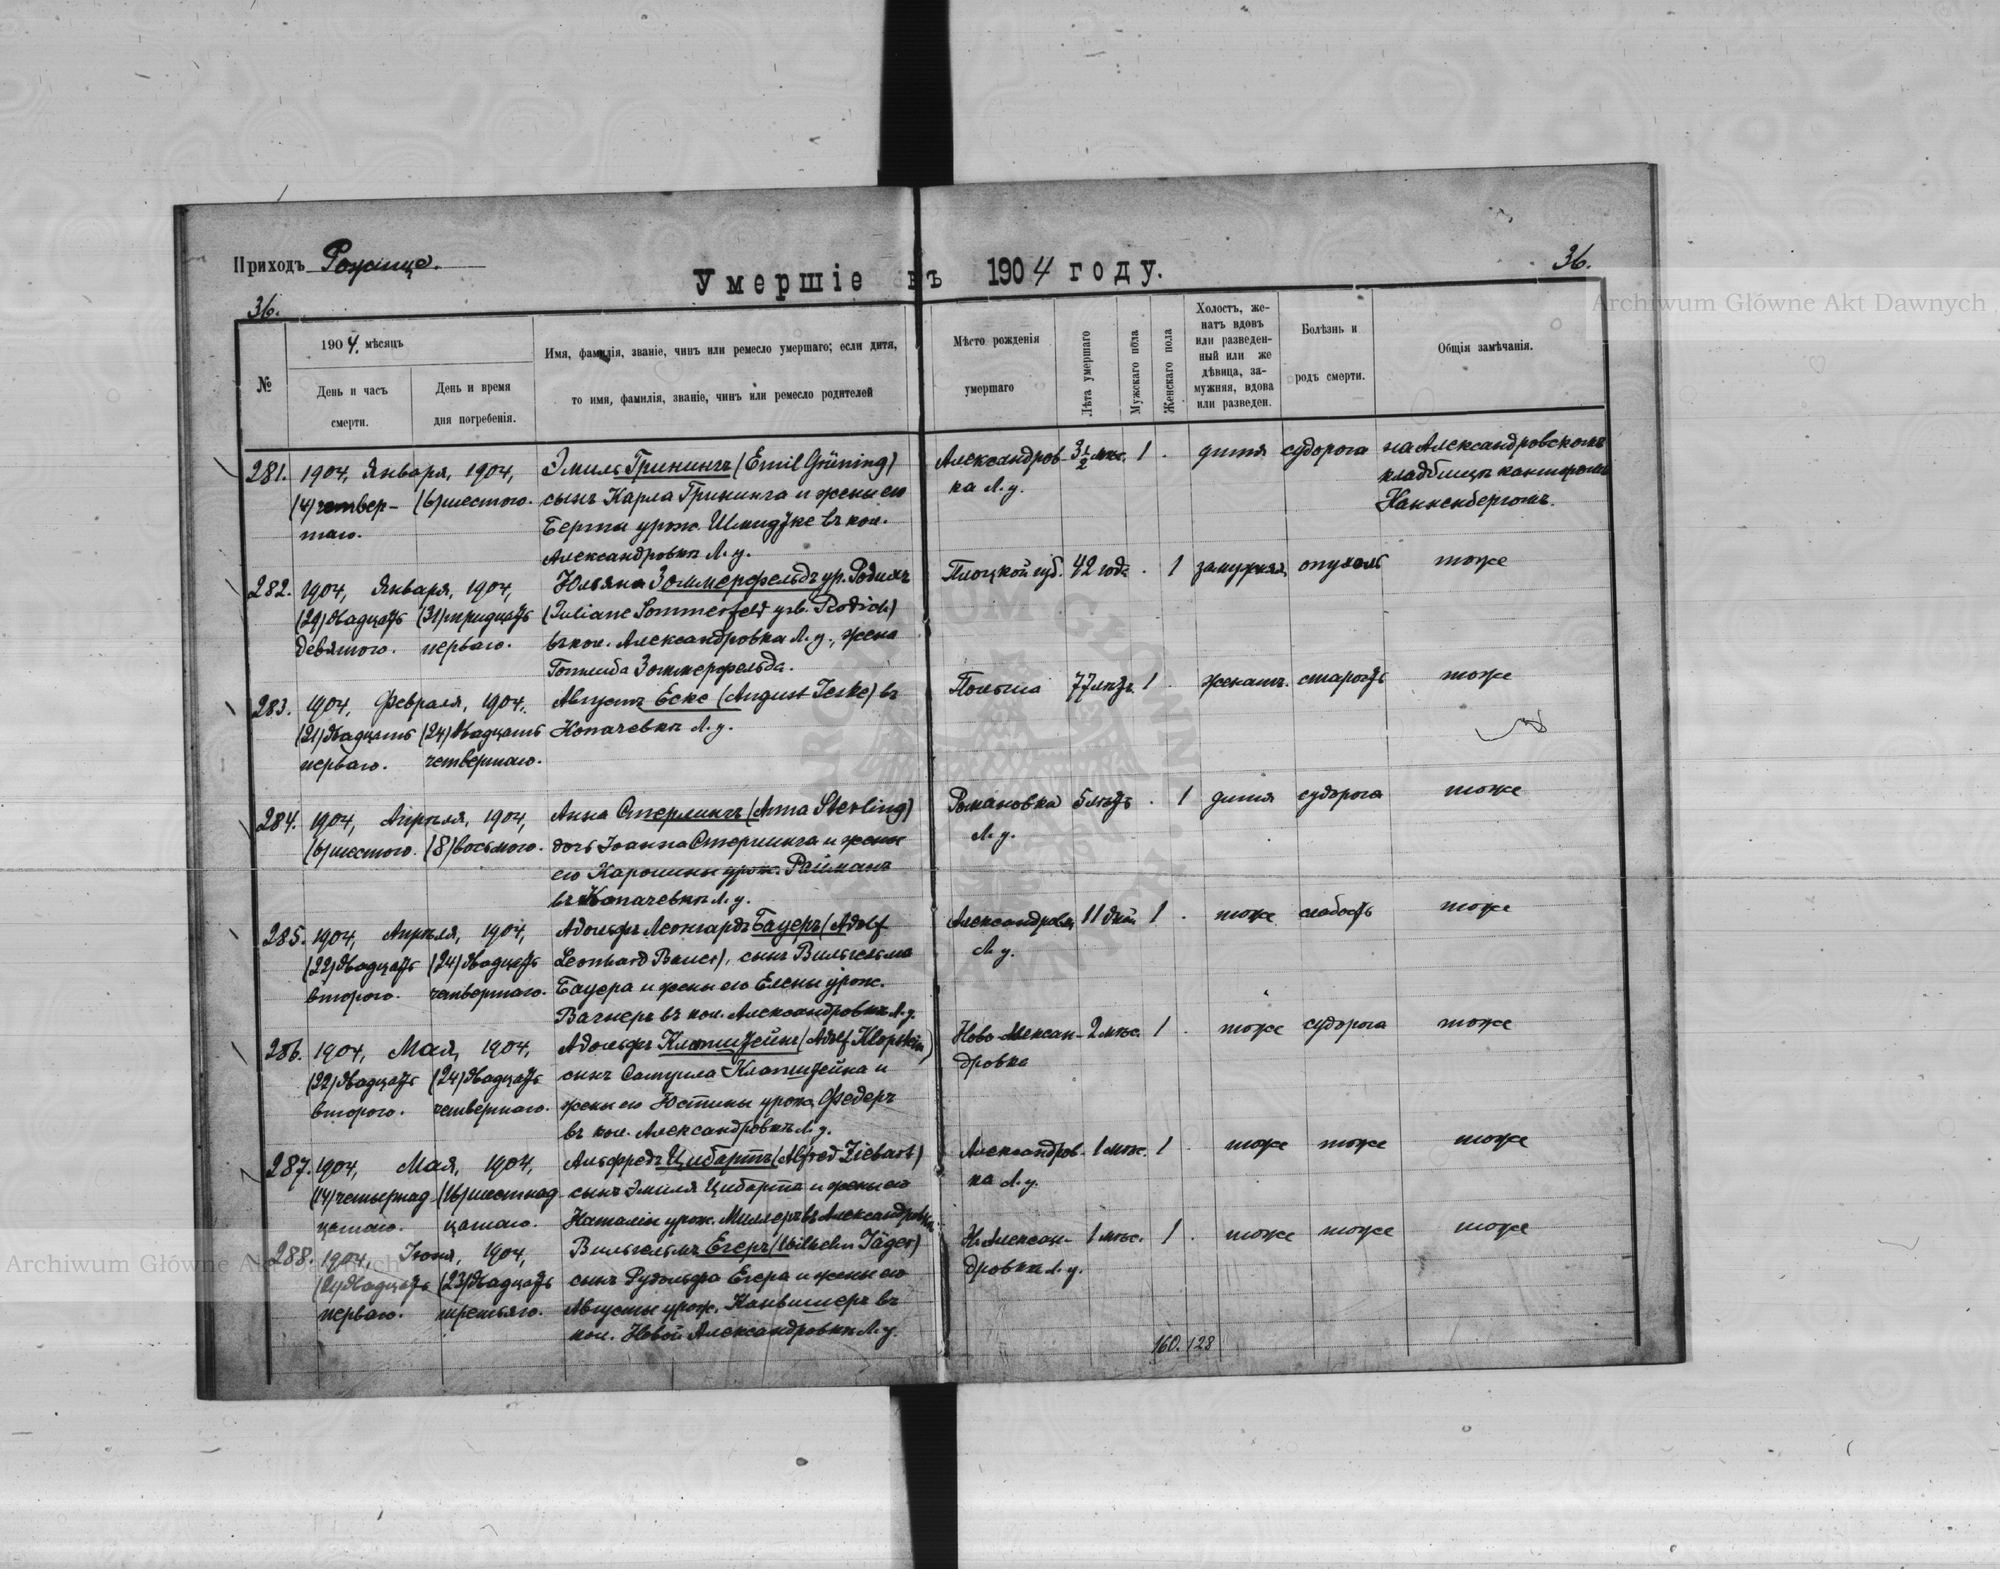 Приходъ Рожище.
Умершіе въ 1904 году.
36.
36.
Archiwum Główne Akt Dawnych
№
1904, мѣсяцъ
День и часъ
смерти.
День и время
дня погребенія.
Имя, фамилія, званіе, чинъ или ремесло умершаго; если дитя,
то имя, фамилія, званіе, чинъ или ремесло родителей
Мѣсто рожденія
умершаго
Лѣта умершаго
Мужскаго пола
Женскаго пола
Холостъ, же-
натъ вдовъ
или разведен-
ный или же
дѣвица, за-
мужняя, вдова
или разведен.
Болѣзнь и
родъ смерти.
Общія замѣчанія.
281. 1904, Января, 1904,
(4) четвер-
таго.
(6) шестого.
Эмиль Гринингъ (Emil Grüning)
сынъ Карла Грининга и жены его
Берты урож. Шмидтке въ кол.
Александровкѣ Л. у.
Александров-
ка Л. у.
3 1/2 мѣс. 1 .
дитя
судорога
на Александровскомъ
кладбищѣ канторомъ
Нанненбергомъ.
282. 1904, Января, 1904,
(29) двадцать
девятого.
(31) тридцать
перваго.
Юльяна Зоммерфельдъ ур. Родихъ
(Juliane Sommerfeld geb. Rodich)
въ кол. Александровка Л. у., жена
Готлиба Зоммерфельда.
Плоцкой губ. 42 года . 1
замужняя
опухоль
тоже
283. 1904, Февраля, 1904,
(21) двадцать
перваго.
(24) двадцать
четвертаго.
Августъ Еске (August Jeske) въ
Копачевкѣ Л. у.
Польша 77 лѣтъ 1 .
женатъ.
старость
тоже
284. 1904, Апрѣля, 1904,
(6) шестого.
(8) восьмого.
Анна Стерлингъ (Anna Sterling)
дочь Іоанна Стерлинга и жены
его Каролины урож. Райманъ
въ Копачевкѣ Л. у.
Романовка
Л. у.
5 лѣтъ . 1
дитя
судорога
тоже
285. 1904, Апрѣля, 1904,
(22) двадцать
второго.
(24) двадцать
четвертаго.
Адольфъ Леонгардъ Бауеръ (Adolf
Leonhard Bauer), сынъ Вильгельма
Бауера и жены его Елены урож.
Вагнеръ въ кол. Александровкѣ Л. у.
Александровка
Л. у.
11 дней 1 .
тоже
слабость
тоже
286. 1904, Мая, 1904,
(22) двадцать
второго.
(24) двадцать
четвертаго.
Адольфъ Клопштейнъ (Adolf Klopstein)
сынъ Самуила Клопштейна и
жены его Юстины урож. Федеръ
въ кол. Александровкѣ Л. у.
Ново-Алексан-
дровка
2 мѣс. 1 .
тоже
судорога
тоже
287. 1904, Мая, 1904,
(14) четырнад-
цатаго.
(16) шестнад-
цатаго.
Альфредъ Цибартъ (Alfred Ziebart)
сынъ Эмиля Цибарта и жены его
Наталіи урож. Миллеръ въ Александровкѣ
Александров-
ка Л. у.
1 мѣс. 1 .
тоже
тоже
тоже
288. 1904, Іюня, 1904,
(21) двадцать
перваго.
(23) двадцать
третьяго.
Вильгельмъ Егеръ (Wilhelm Jäger)
сынъ Рудольфа Егера и жены его
Августы урож.
кол. Новой Александровкѣ Л. у.
Н. Алексан-
дровка Л. у.
1 мѣс. 1 .
тоже
тоже
тоже
160. 128
Archiwum Główne Akt Dawnych